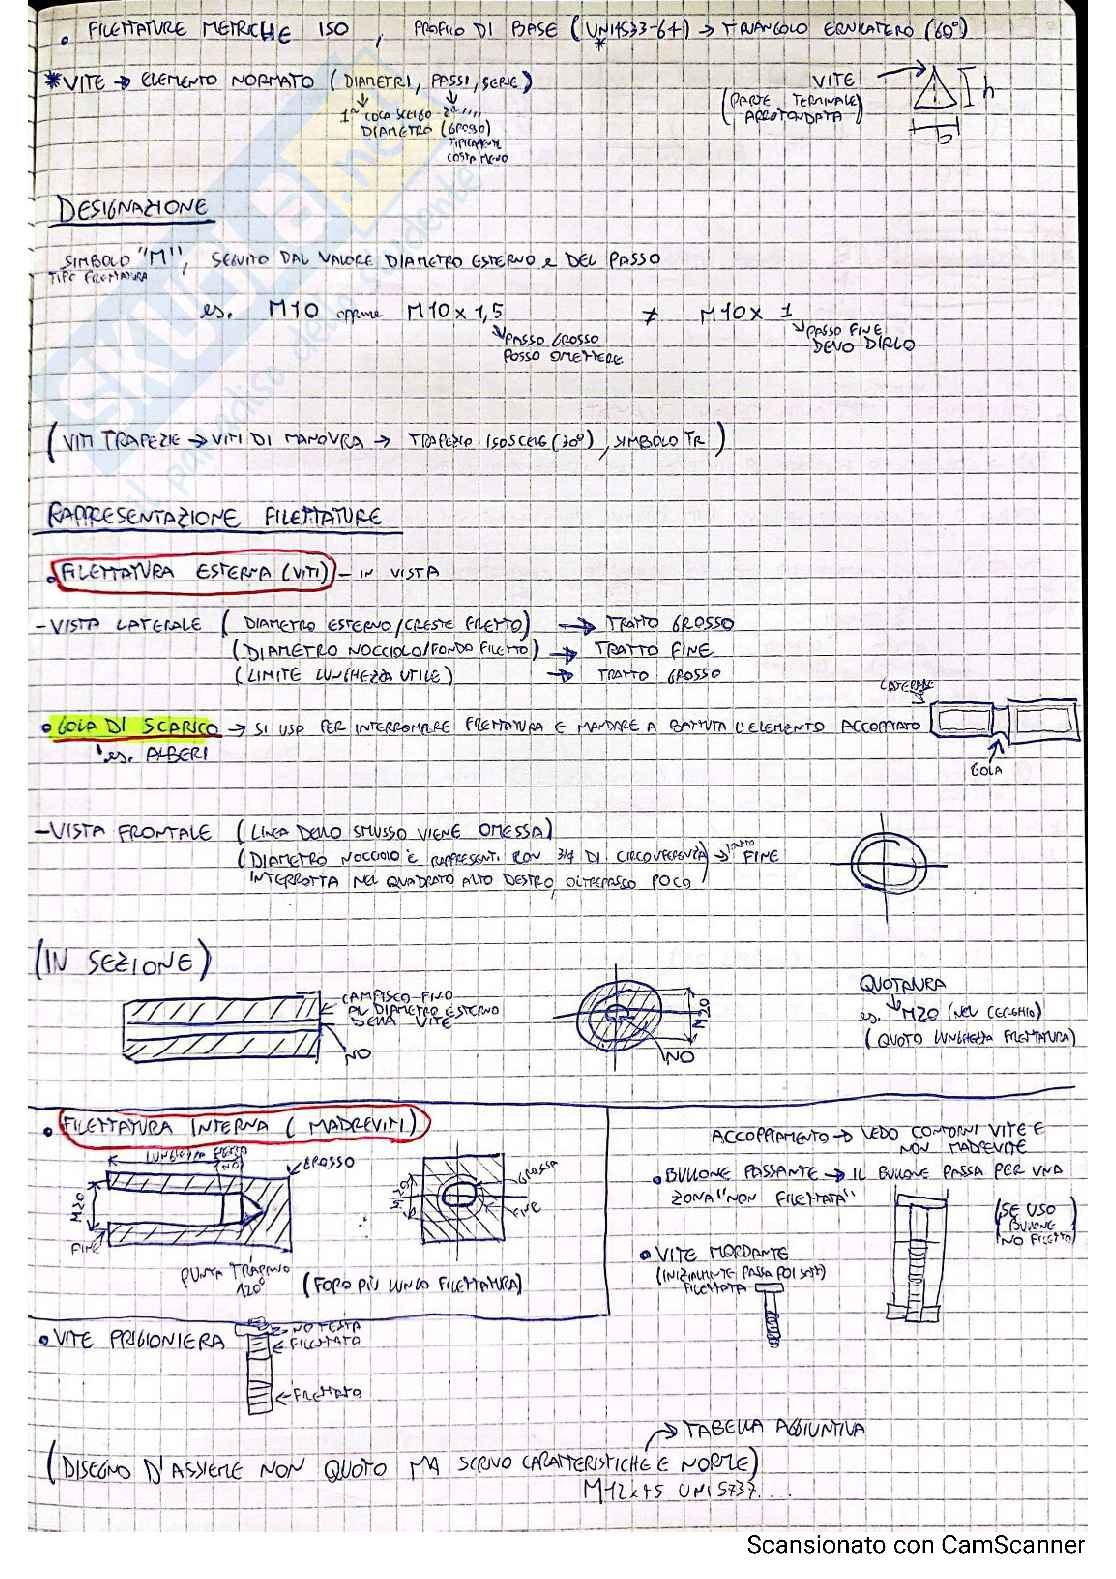 • FILETTATURE METRICHE ISO, PROFILO DI BASE (UNI4533-64) → TRIANGOLO EQUILATERO (60°)
* VITE → ELEMENTO NORMATO (DIAMETRI, PASSI, SERIE)
1ª COSA SCELGO 2ª """
DIAMETRO (GROSSO)
TIPICAMENTE
COSTA MENO
VITE
(PARTE TERMINALE)
ARROTONDATA
h
b
DESIGNAZIONE
SIMBOLO "M", SEGUITO DAL VALORE DIAMETRO ESTERNO e DEL PASSO
TIPO FILETTATURA
es. M10 oppure M10x1,5 ≠ M10x1
PASSO GROSSO
POSSO OMETTERE
PASSO FINE
DEVO DIRLO
(VITI TRAPEZIE → VITI DI MANOVRA → TRAPEZIO ISOSCELE (30°), SIMBOLO TR)
RAPPRESENTAZIONE FILETTATURE
• FILETTATURA ESTERNA (VITI) - IN VISTA
- VISTA LATERALE (DIAMETRO ESTERNO/CRESTE FILETTO) → TRATTO GROSSO
(DIAMETRO NOCCIOLO/FONDO FILETTO) → TRATTO FINE
(LIMITE LUNGHEZZA UTILE) → TRATTO GROSSO
LATERALE
• GOLA DI SCARICO → SI USA PER INTERROMPERE FILETTATURA E MANDARE A BATTUTA L'ELEMENTO ACCOPPIATO
es. ALBERI
GOLA
- VISTA FRONTALE (LINEA DELLO SMUSSO VIENE OMESSA)
(DIAMETRO NOCCIOLO È RAPPRESENT. CON 3/4 DI CIRCONFERENZA) → TRATTO FINE
INTERROTTA NEL QUADRATO ALTO DESTRO, OLTREPASSO POCO
(IN SEZIONE)
CAMPISCO FINO
AL DIAMETRO ESTERNO
DELLA VITE
NO
M20
NO
QUOTATURA
es. M20 (NEL CERCHIO)
(QUOTO LUNGHEZZA FILETTATURA)
• FILETTATURA INTERNA (MADREVITI)
LUNGHEZZA
GROSSO
M20
FINE
PUNTA TRAPANO
120°
M20
GROSSA
FINE
(FORO PIÙ LUNGO FILETTATURA)
ACCOPPIAMENTO → VEDO CONTORNI VITE E
NON MADREVITE
• BULLONE PASSANTE → IL BULLONE PASSA PER UNA
ZONA "NON FILETTATA"
(SE USO
BULLONE
NO FILETTO)
• VITE MORDENTE
(INIZIALMENTE PASSA POI SOTTO)
FILETTATA
• VITE PRIGIONIERA
NO TESTA
FILETTATO
FILETTATO
→ TABELLA AGGIUNTIVA
(DISEGNO D'ASSIEME NON QUOTO MA SCRIVO CARATTERISTICHE E NORME)
M12x45 UNI5737....
Scansionato con CamScanner